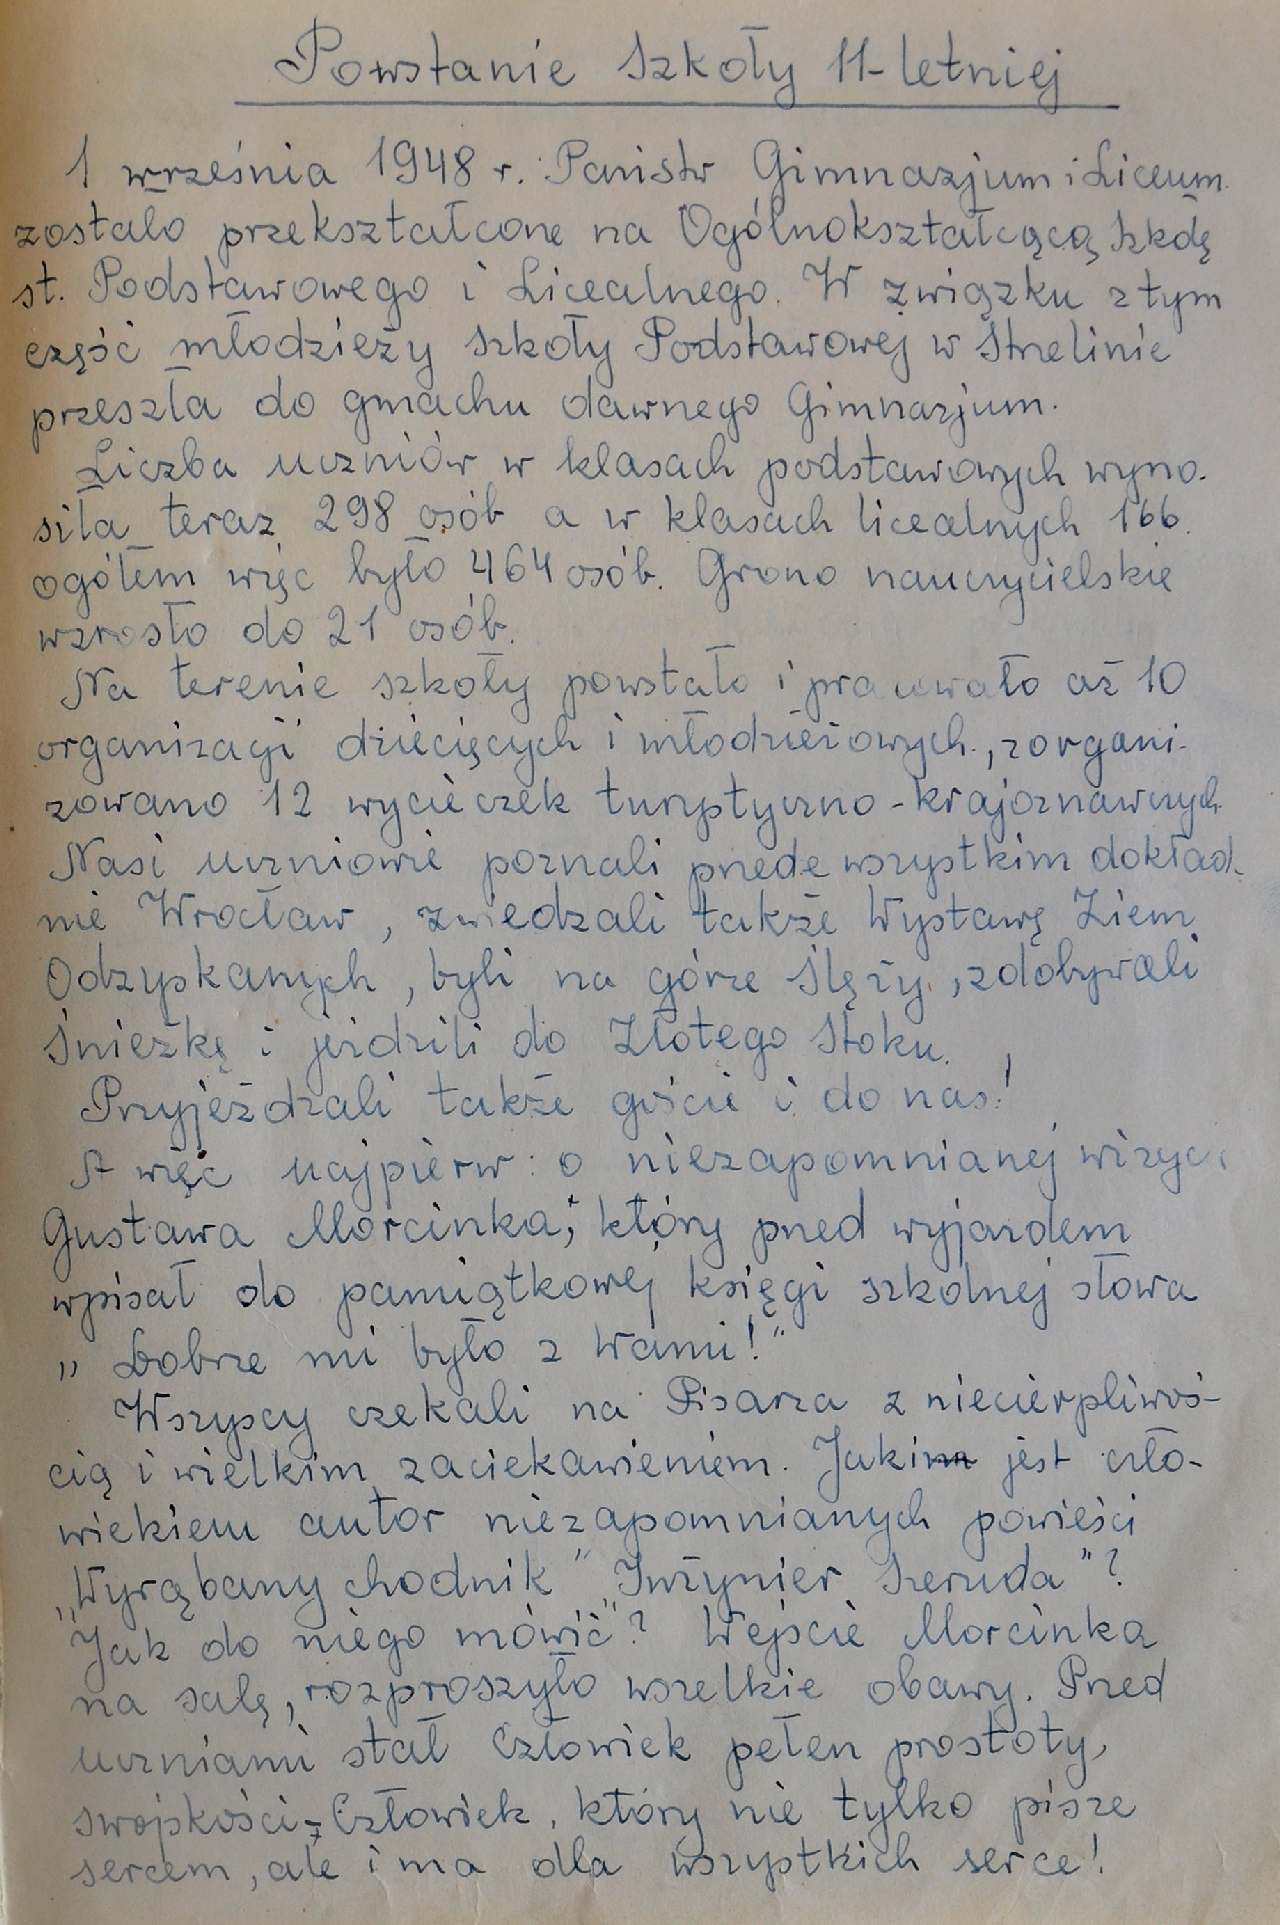 Powstanie Szkoły 11-letniej
1 września 1948 r. Państw Gimnazjum i Liceum
zostało przekształcone na Ogólnokształcącą Szkołę
st. Podstawowego i Licealnego. W związku z tym
część młodzieży szkoły Podstawowej w Strzelinie
przeszła do gmachu dawnego Gimnazjum.
Liczba uczniów w klasach podstawowych wyno-
siła teraz 298 osób a w klasach licealnych 166.
ogółem więc było 464 osób. Grono nauczycielskie
wzrosło do 21 osób.
Na terenie szkoły powstało i pracowało aż 10
organizacji dziecięcych i młodzieżowych, zorgani-
zowano 12 wycieczek turystyczno-krajoznawczych
Nasi uczniowie poznali przede wszystkim dokład-
nie Wrocław, zwiedzali także Wystawę Ziem
Odzyskanych, byli na górze Ślęży, zdobywali
Śnieżkę i jeździli do Złotego Stoku.
Przyjeżdżali także goście i do nas!
A więc najpierw: o niezapomnianej
Gustawa Morcinka, który przed wyjazdem
wpisał do pamiątkowej księgi szkolnej słowa
„Dobrze mi było z Wami!"
Wszyscy czekali na Pisarza z niecierpliwoś-
cią i wielkim zaciekawieniem. Jakim jest czło-
wiekiem autor niezapomnianych powieści
„Wyrąbany chodnik" „Inżynier Szeruda"?
"Jak do niego mówić"? Wejście Morcinka
na salę, rozproszyło wszelkie obawy. Przed
uczniami stał Człowiek pełen prostoty,
swojskości, Człowiek, który nie tylko pisze
sercem, ale i ma dla wszystkich serce!